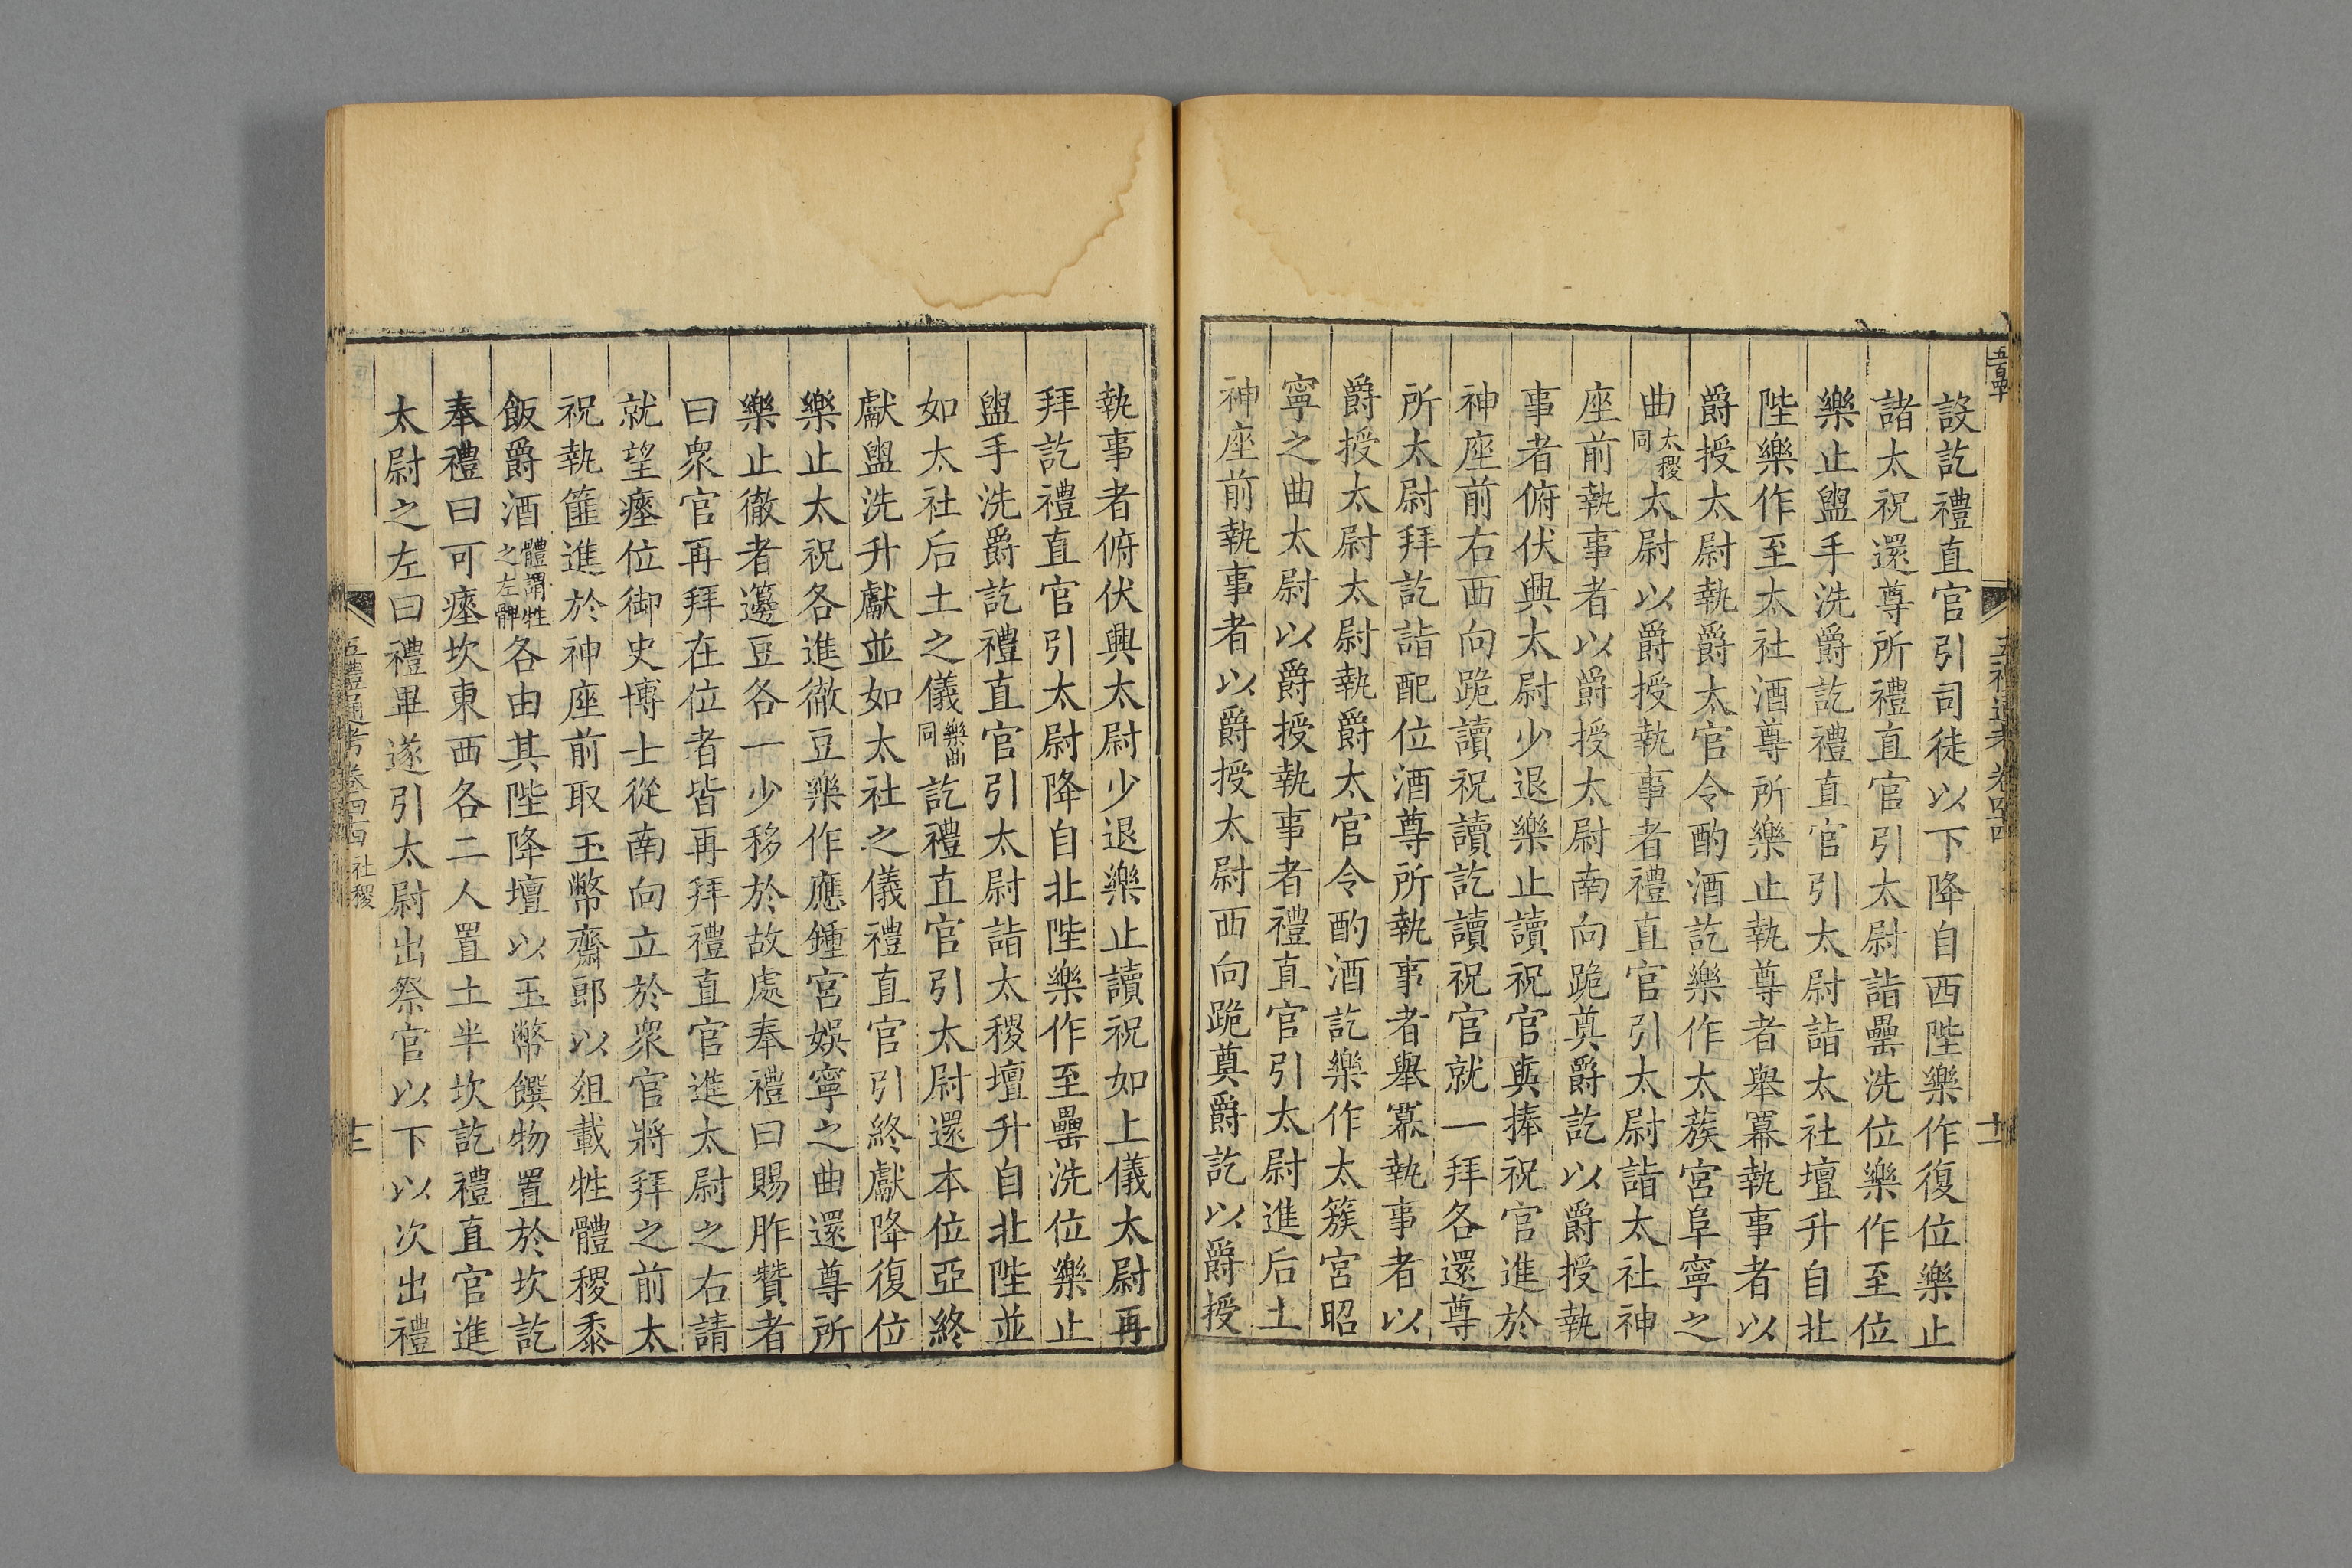 設訖禮直官引司徒以下降自西陛樂作復位樂止
諸太祝還尊所禮直官引太尉詣罍洗位樂作至位
樂止盥手洗爵訖禮直官引太尉詣太社壇升自北
陛樂作至太社酒尊所樂止執尊者舉羃執事者以
爵授太尉執爵太官令酌酒訖樂作太蔟宮阜寧之
曲太稷同太尉以爵授執事者禮直官引太尉詣太社神
座前執事者以爵授太尉南向跪奠爵訖以爵授執
事者俯伏興太尉少退樂止讀祝官與捧祝官進於
神座前右西向跪讀祝讀訖讀祝官就一拜各還尊
所太尉拜訖詣配位酒尊所執事者舉羃執事者以
爵授太尉太尉執爵太官令酌酒訖樂作太簇宮昭
寧之曲太尉以爵授執事者禮直官引太尉進后土
神座前執事者以爵授太尉西向跪奠爵訖以爵授
執事者俯伏興太尉少退樂止讀祝如上儀太尉再
拜訖禮直官引太尉降自北陛樂作至罍洗位樂止
盥手洗爵訖禮直官引太尉詣太稷壇升自北陛並
如太社后土之儀樂曲同訖禮直官引太尉還本位亞終
獻盥洗升獻並如太社之儀禮直官引終獻降復位
樂止太祝各進徹豆樂作應鍾宮娛寧之曲還尊所
樂止徹者籩豆各一少移於故處奉禮曰賜胙贊者
曰衆官再拜在位者皆再拜禮直官進太尉之右請
就望瘞位御史博士從南向立於衆官將拜之前太
祝執篚進於神座前取玉幣齋郎以俎載牲體稷黍
飯爵酒體謂牲之左髀各由其陛降壇以玉幣饌物置於坎訖
奉禮曰可瘞坎東西各二人置土半坎訖禮直官進
太尉之左曰禮畢遂引太尉出祭官以下以次出禮
五禮通考 卷四十四 社稷
十二